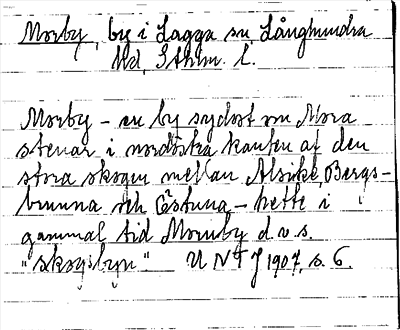 Morby, by i Lagga sn Långhundra
hd, Sthlm. l.
Morby - en by sydost om Mora
stenar i nordöstra kanten af den
stora skogen mellan Alsike, Bergs-
brunna och Östuna - hette i
gammal tid Mornby d.v.s.
"skogsbyn" UNT J 1907, s. 6.